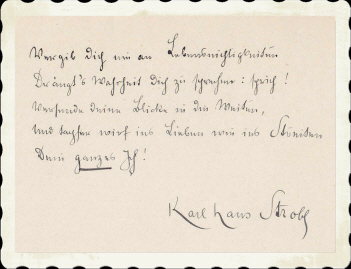 Vergib dich nie an Lebensnichtigkeiten
Drängt's Wahrheit Dich zu sprechen: sprich!
Versende deine Blicke in die Weiten,
Und tapfer wirf ins Lieben wie ins Streiten
Dein ganzes Ich!
Karl Hans Strobl